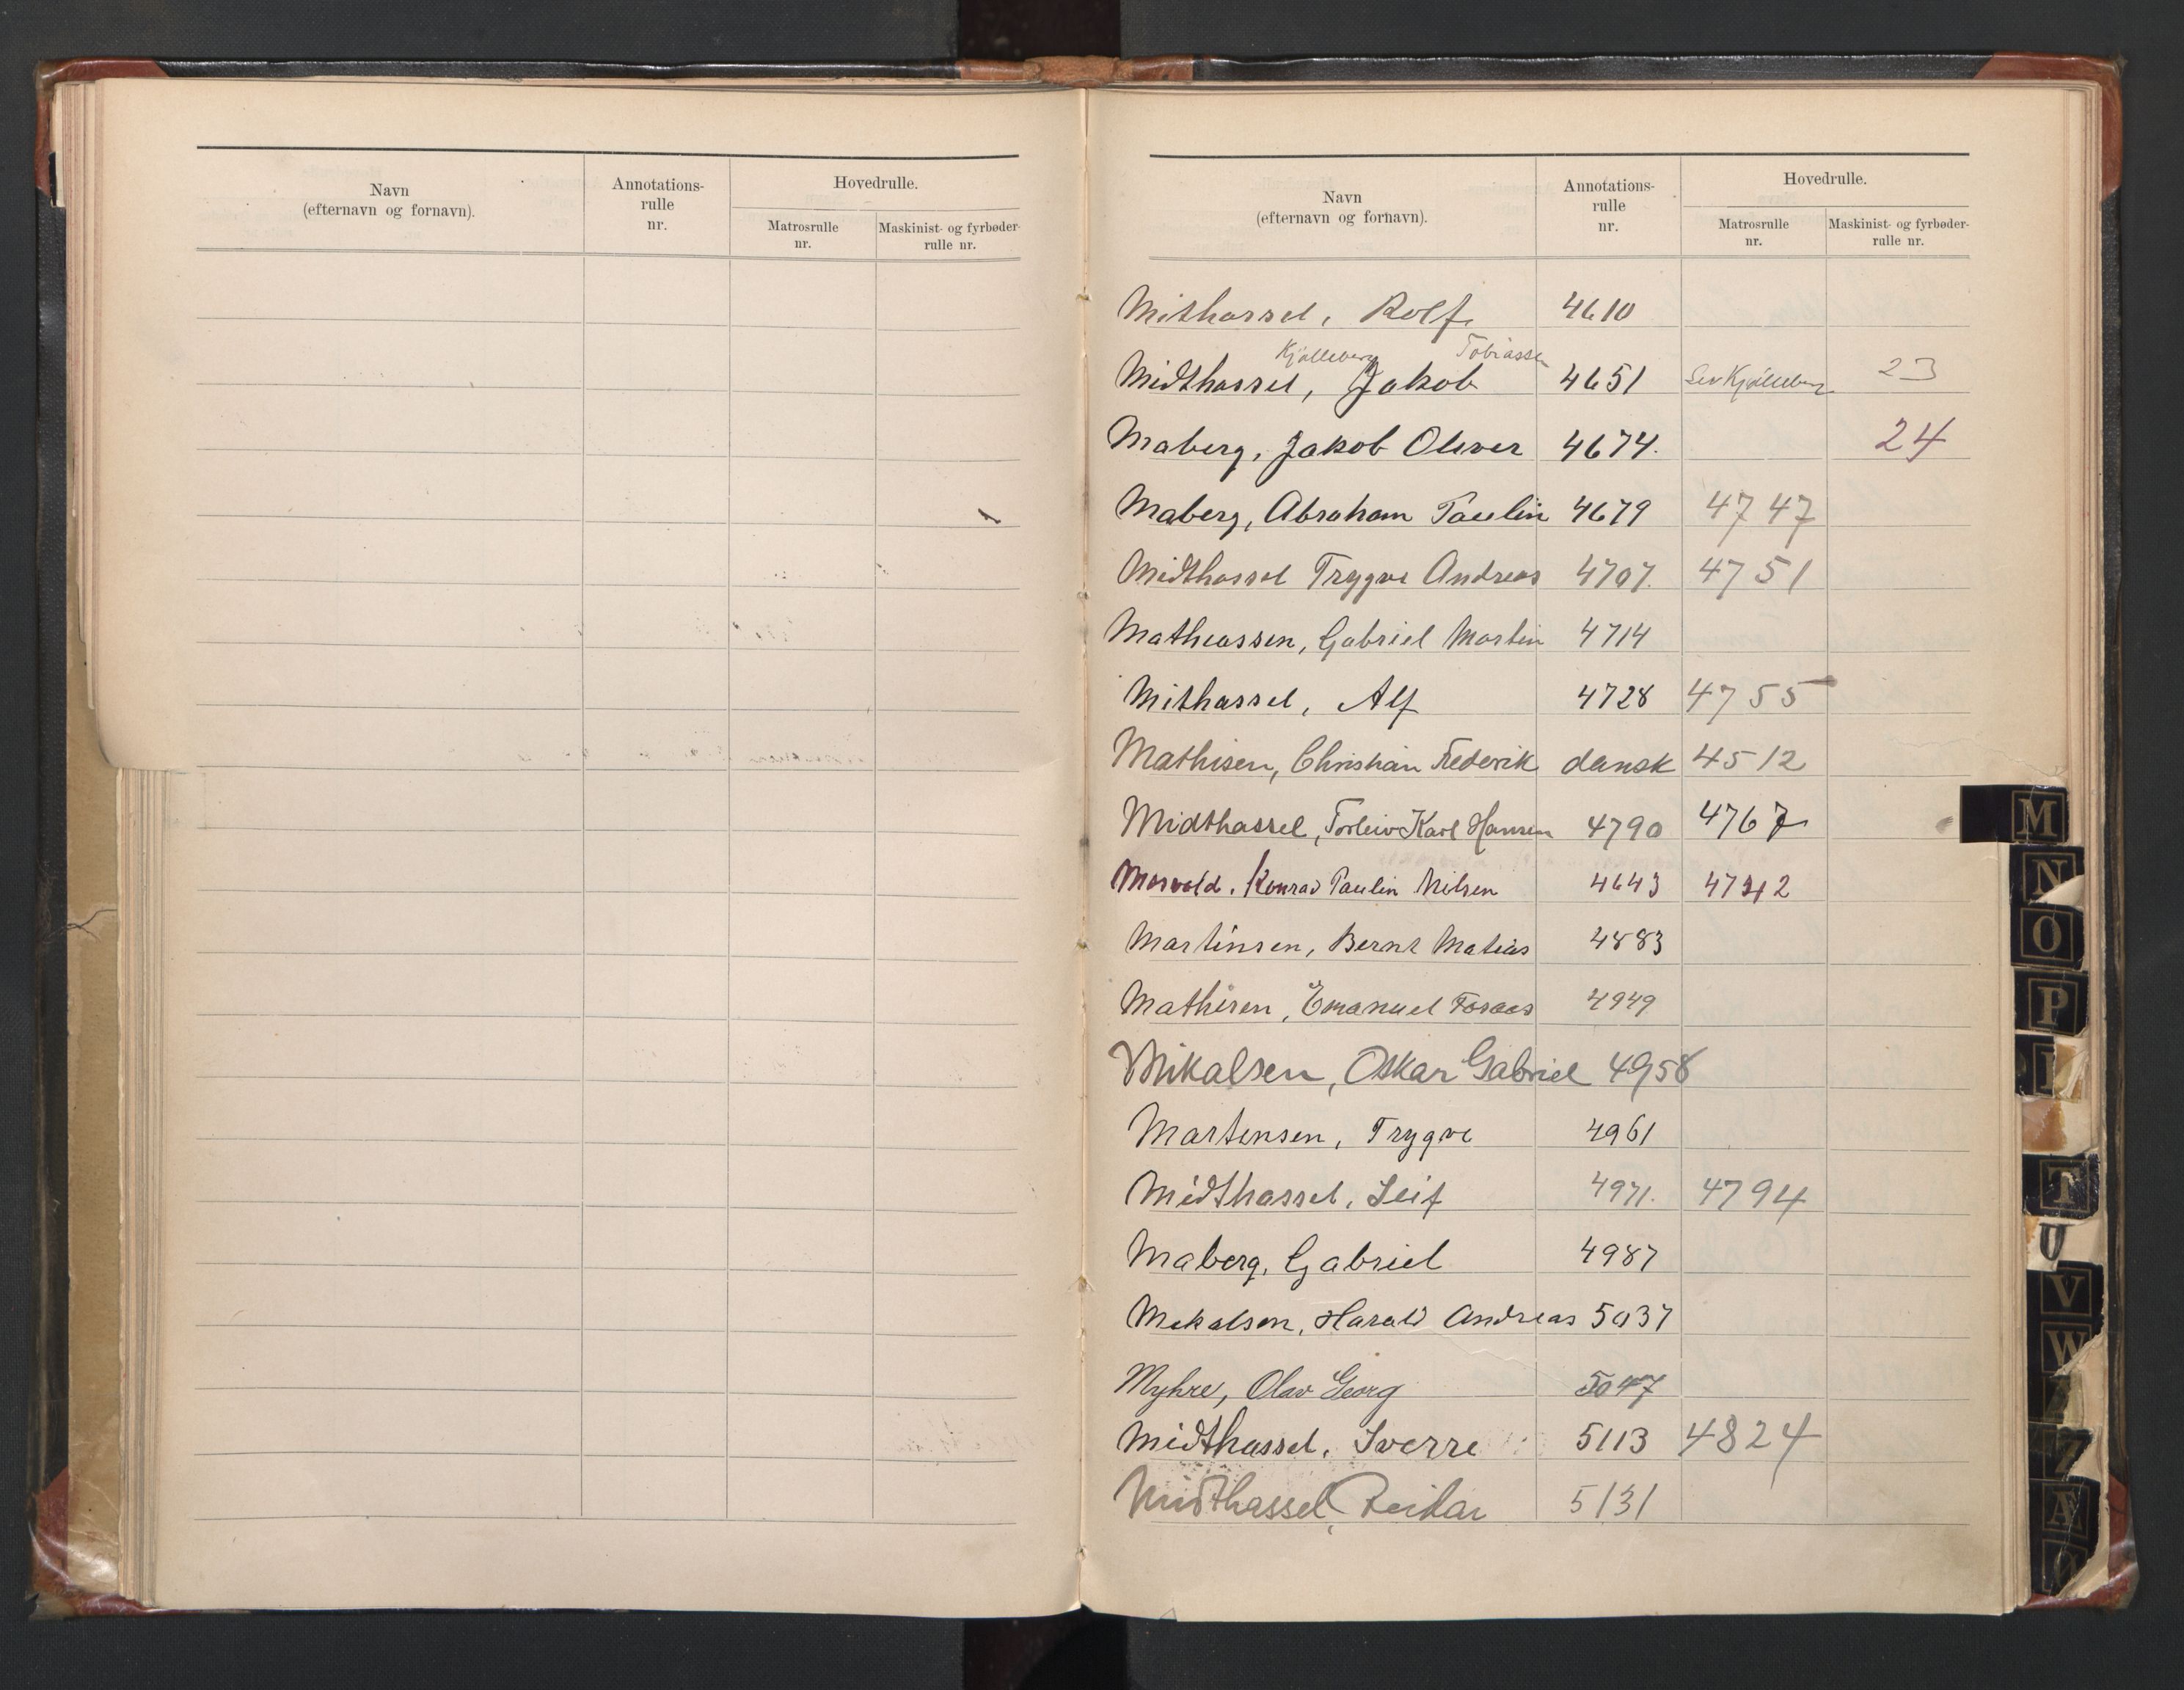 Navn
(efternavn og fornavn).
Annotations-
rulle
nr.
Hovedrulle.
Matrosrulle
nr.
Maskinist- og fyrbøder-
rulle nr.
Navn
(efternavn og fornavn).
Annotations-
rulle
nr.
Hovedrulle.
Matrosrulle
nr.
Maskinist- og fyrbøder-
rulle nr.
Mithassel, Rolf 4610
Kjølleberg Tobiassen
Midthassel, Jakob 4651 Kjølleberg 23
Maberg, Jakob Oliver 4674. 24
Maberg, Abraham Paulin 4679 4747
Midthassel Trygve Andreas 4707. 4751
Matheassen, Gabriel Martin 4714
Mithassel, Alf 4728 4755
Mathisen, Christian Frederik dansk 4512
Midthassel, Torleiv Karl Hansen 4790 4767
Mosvold, Konrad Paulin Nilsen 4643 4742
Martinsen, Bernt Matias 4883
Mathisen, Emanuel 4949
Mikalsen, Oskar Gabriel 4958
Martensen, Trygve 4961
Midthassel, Leif 4971. 4794
Maberg, Gabriel 4987
Mekalsen, Harald Andreas 5037
Myhre, Olav Georg 5047
Midthassel, Sverre 5113 4824
Midthassel, Reidar 5131
M
N
O
P
T
U
V
W
Z
Æ